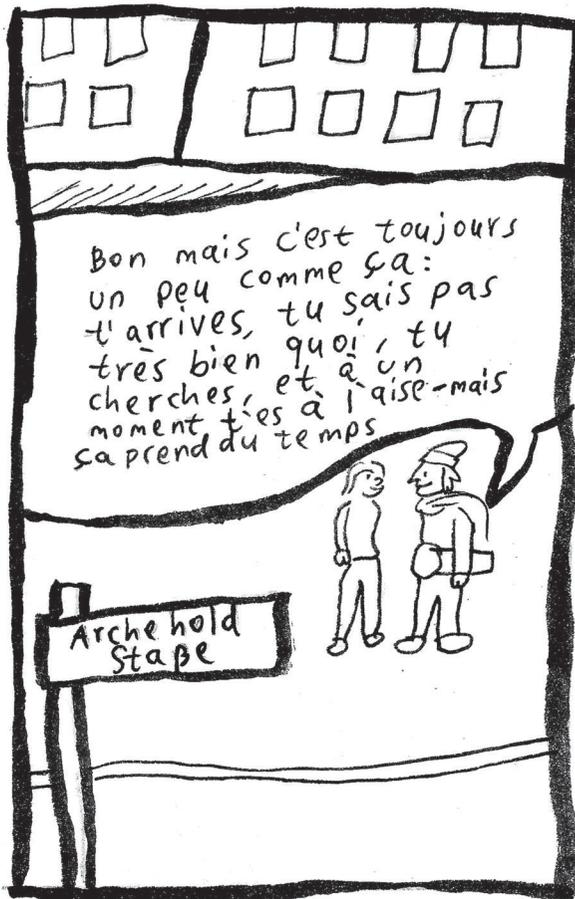 Bon mais c'est toujours
un peu comme ça:
t'arrives, tu sais pas
très bien quoi, tu
cherches, et à un
moment t'es à l'aise-mais
ça prend du temps
Arche hold
Staße